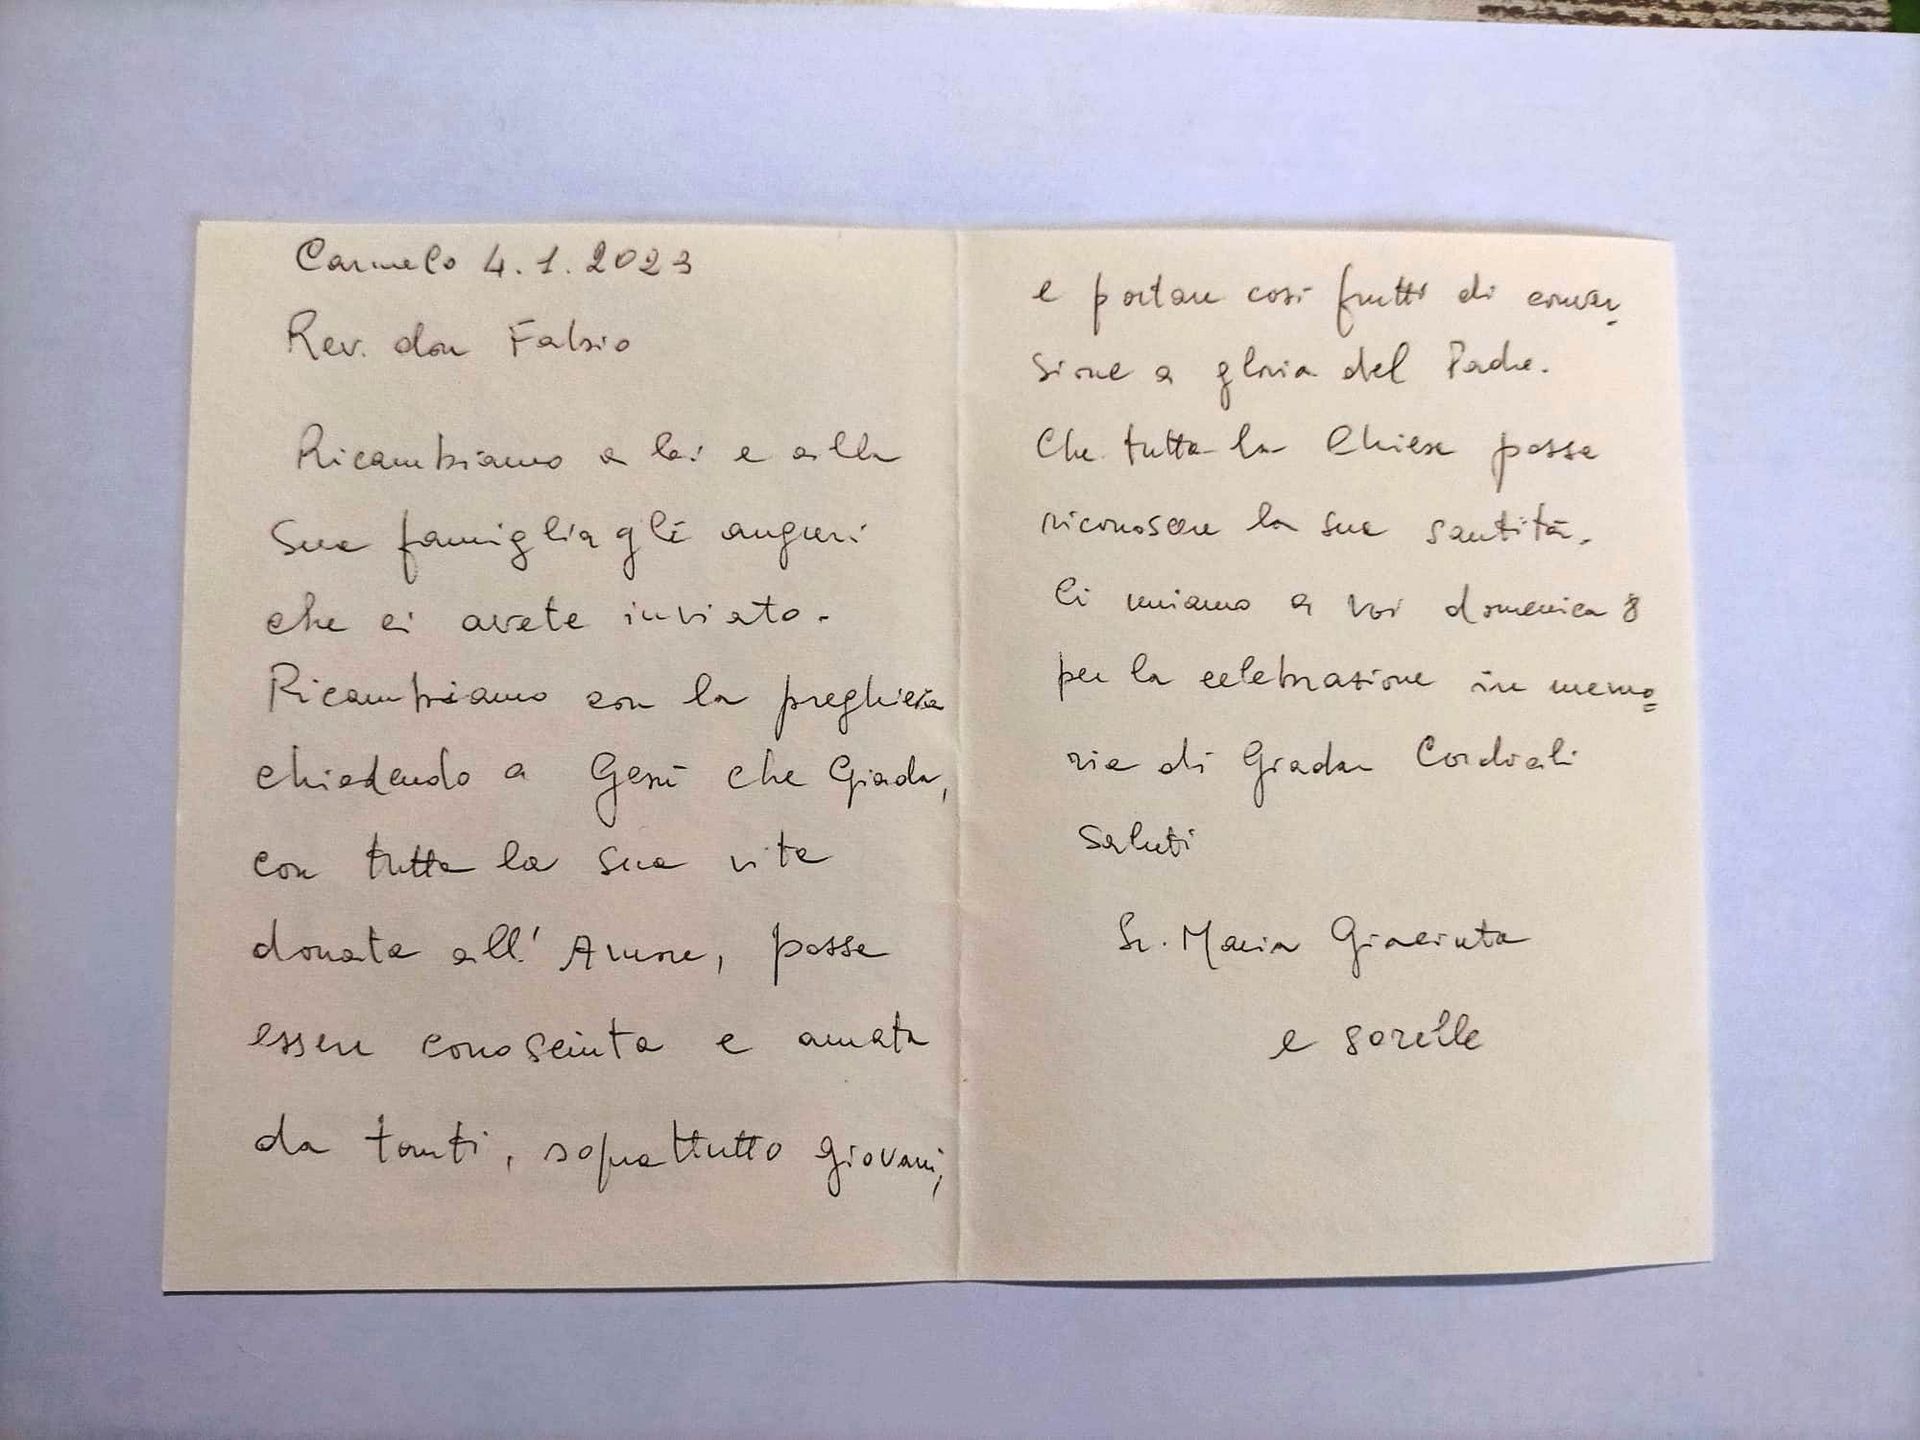 Carmelo 4.1.2023
Rev. don Fabio
Ricambiamo a lei e alla
Sua famiglia gli auguri
che ci avete inviato.
Ricambiamo con la preghiera
chiedendo a Gesù che Giada,
con tutta la sua vita
donata all'Amore, possa
essere conosciuta e amata
da tanti, soprattutto giovani,
e portare così frutti di conver-
sione a gloria del Padre.
Che tutta la Chiesa possa
riconoscere la sua santità.
Ci uniamo a voi domenica 8
per la celebrazione in memo=
ria di Giada. Cordiali
saluti
Sr. Maria Giacinta
e sorelle